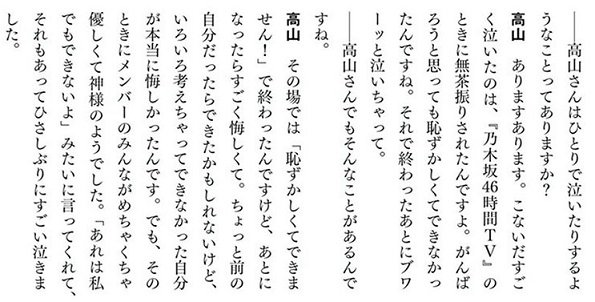 ――高山さんはひとりで泣いたりするよ
うなことってありますか？
高山　ありますあります。こないだすご
く泣いたのは、『乃木坂46時間TV』の
ときに無茶振りされたんですよ。がんば
ろうと思っても恥ずかしくてできなかっ
たんですね。それで終わったあとにブワ
ーッと泣いちゃって。
――高山さんでもそんなことがあるんで
すね。
高山　その場では「恥ずかしくてできま
せん！」で終わったんですけど、あとに
なったらすごく悔しくて。ちょっと前の
自分だったらできたかもしれないけど、
いろいろ考えちゃってできなかった自分
が本当に悔しかったんです。でも、その
ときにメンバーのみんながめちゃくちゃ
優しくて神様のようでした。「あれは私
でもできないよ」みたいに言ってくれて、
それもあってひさしぶりにすごい泣きま
した。